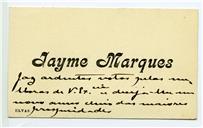 Jayme Marques
faz ardentes votos pelas me
lhoras de V. Ex.cia e deseja-lhe um
novo anno cheio das maiores
ELVAS prosperidades